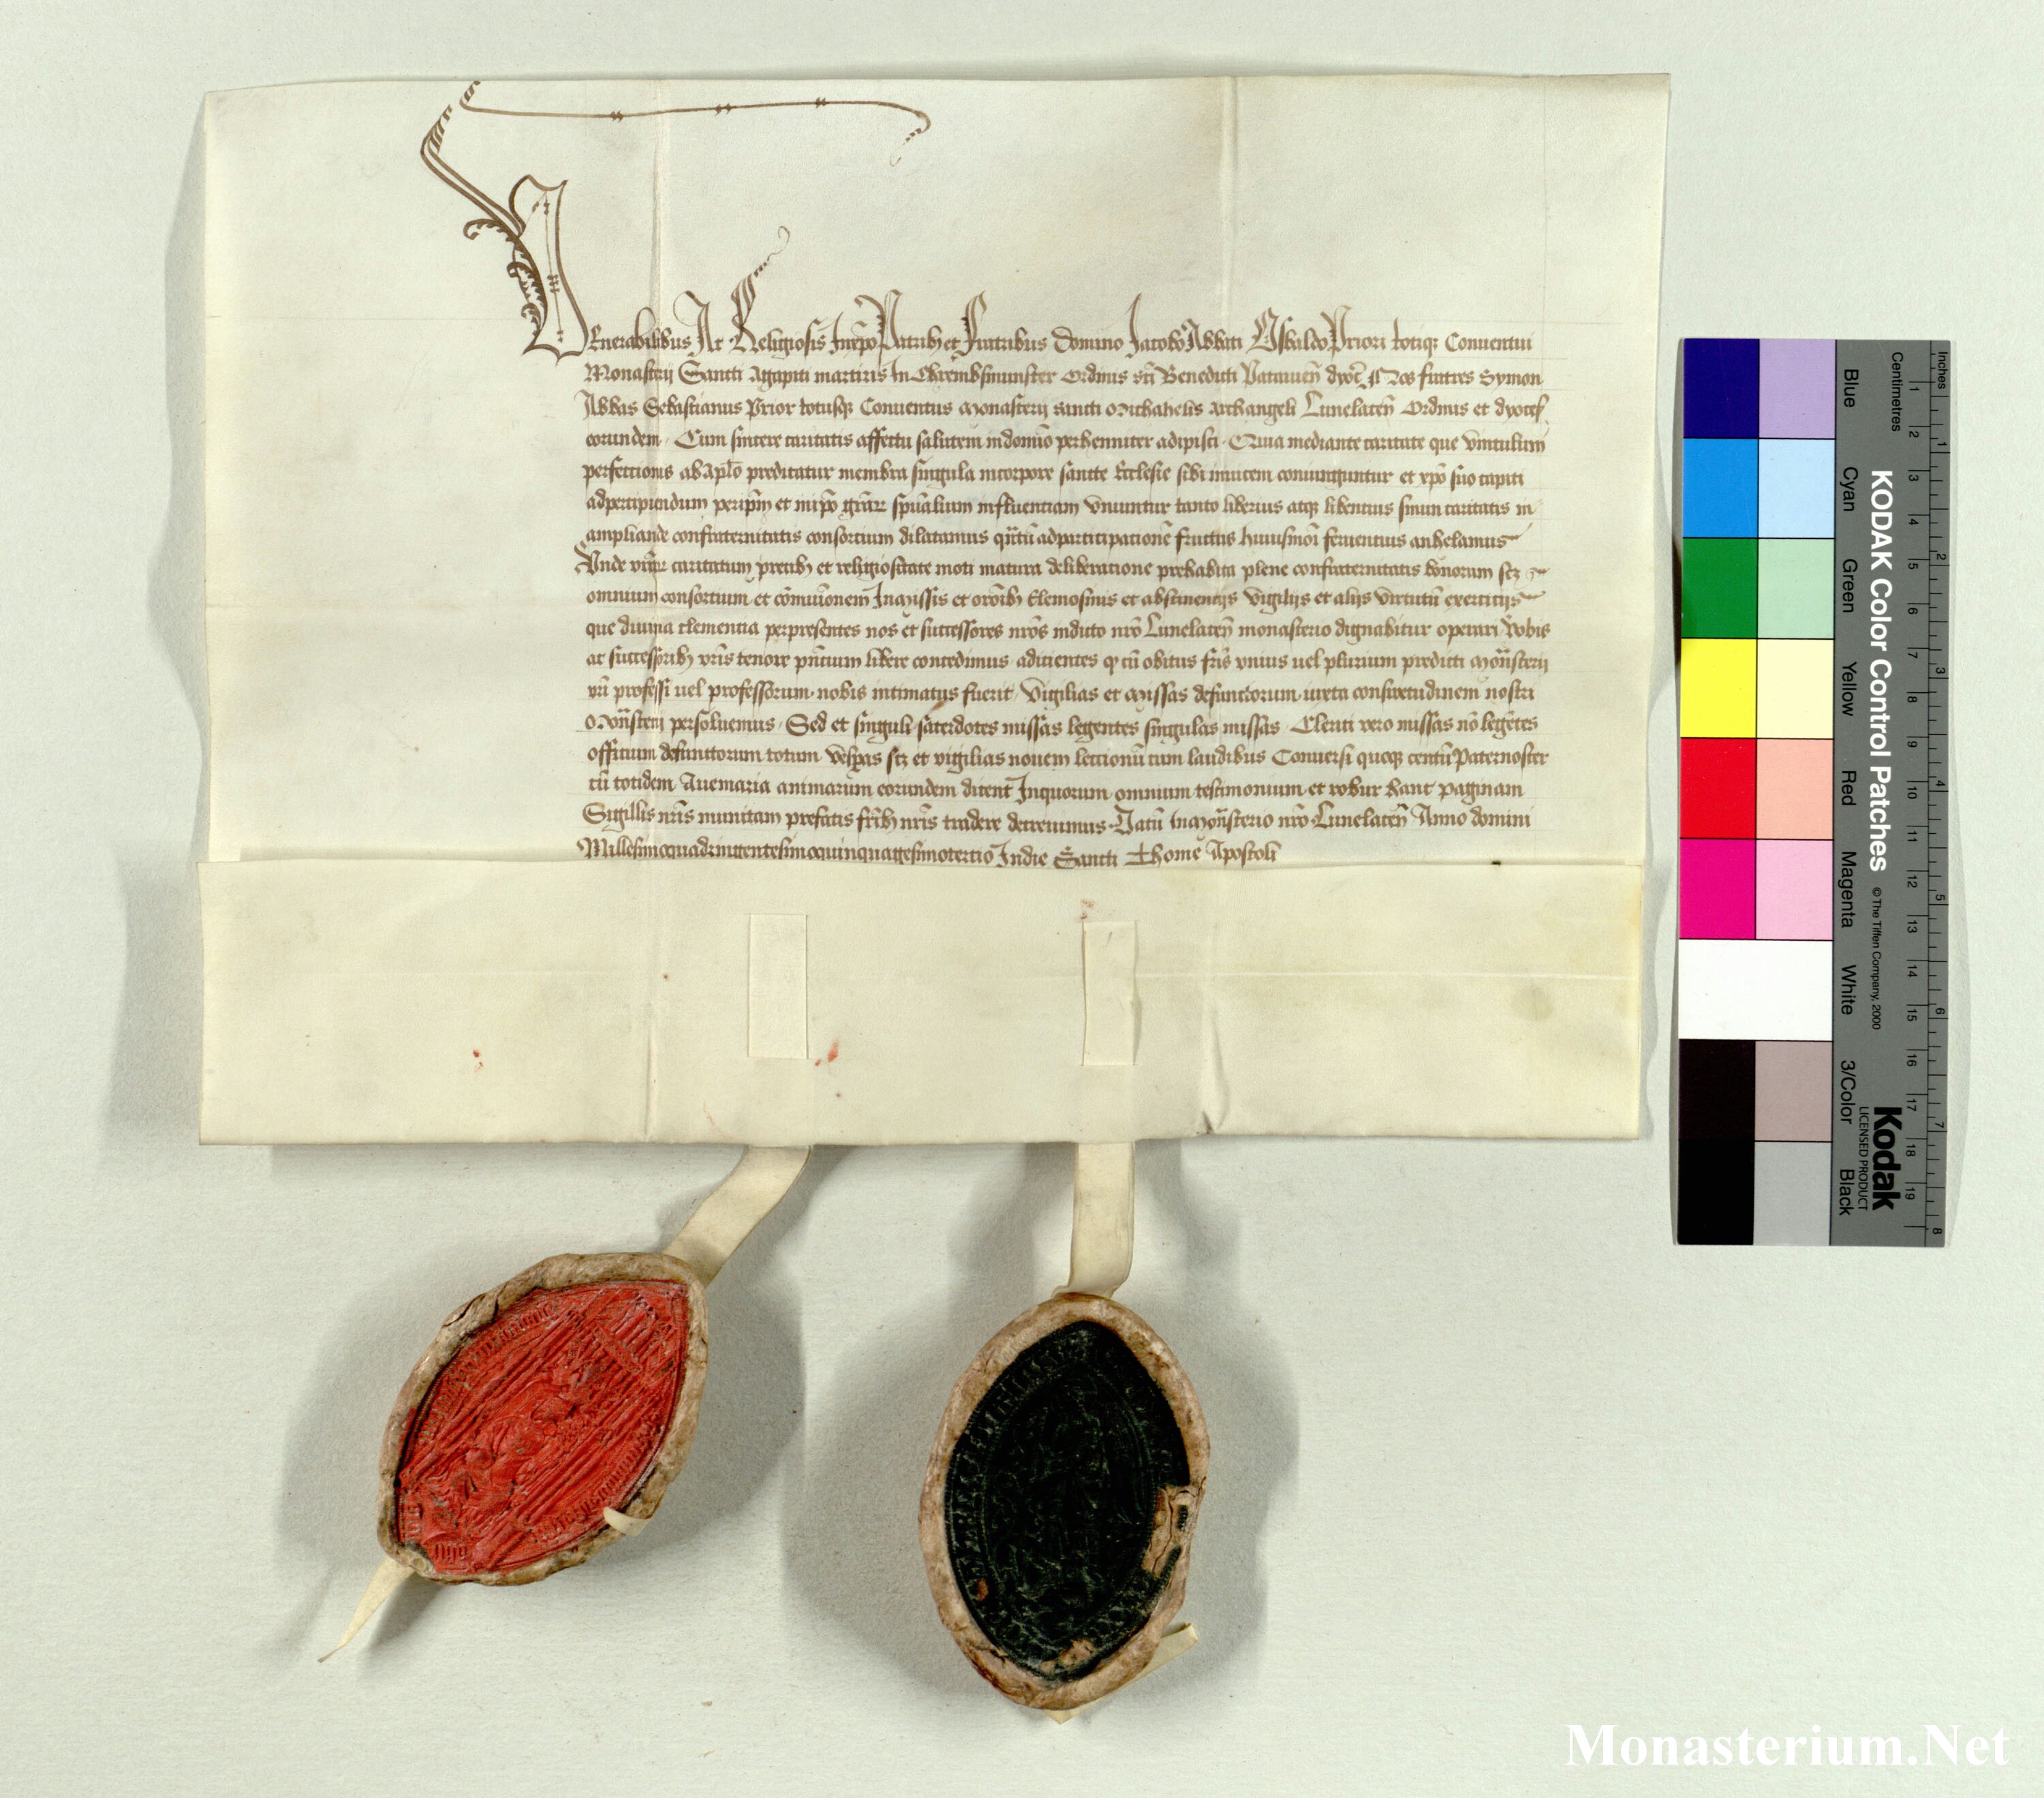 Venerabilibus Ac Religiosis In xp̄o Patribꝫ et Fratribus Domino Jacobo Abbati Osbaldo Priori totiqꝫ Conuentui
Monasterij Sancti Agapiti martiris In Chrembsmunster Ordinis sc̄ti Benedicti Patauien̄ dyoc̄ Nos fratres Symon
Abbas Sebastianus Prior totusqꝫ Conuentus Monasterij sancti Michahelis Archangeli Lunelacen̄ Ordinis et dyoces̄
eorundem Cum sincere caritatis affectu salutem in domīo perhenniter adipisci Quia mediante caritate que vinculum
perfectionis ab Apl̄o predicatur membra singula in corpore sancte Ecclesie sibi inuicem coniunguntur et xp̄o suo capiti
ad percipiendum per ip̄m et in ip̄o gr̄aꝝ sp̄ualium influentiam vniuntur tanto liberius atqꝫ libentius sinum caritatis in
ampliande confraternitatis consortium dilatamus qn̄tū ad participacionē fructus huiusmōi feruentius anhelamus
Vnde vr̄aꝝ caritatum precibꝫ et religiositate moti matura deliberatione prehabita plene confraternitatis bonorum scꝫ
omnium consortium et cōmuīonem In Missis et or̄onibꝫ Elemosinis et abstinencijs vigilijs et alijs virtutū exercicijs
que diuina clementia per presentes nos et successores nr̄os in dicto nr̄o Lunelacen̄ monasterio dignabitur operari vobis
ac successoribꝫ vr̄is tenore pn̄cium libere concedimus adicientes qꝫ cū obitus fr̄is vnius uel plurium predicti Mon̄sterij
vr̄i professi uel professorum nobis intimatus fuerit Vigilias et Missas defunctorum iuxta consuetudinem nostri
Mon̄sterij persoluemus Sed et singuli sacerdotes missas legentes singulas missas Clerici vero missas nō legētes
officium defunctorum totum vesperas scꝫ et vigilias nouem lectionū cum laudibus Conuersi quoqꝫ centū Paternoster
cū totidem Auemaria animarum eorundem dicent In quorum omnium testimonium et robur hanc paginam
Sigillis nr̄is munitam prefatis fr̄ibꝫ nr̄is tradere decreuimus Datū in Mon̄sterio nr̄o Lunelacen̄ Anno domini
Millesimoquadringentesimoquinquagesimotertio In die Sancti Thome Apostoli
Inches
Centimetres
1 2 3 4 5 6 7 8 9 10 11 12 13 14 15 16 17 18 19
1 2 3 4 5 6 7 8
KODAK Color Control Patches © The Tiffen Company, 2000
Kodak
LICENSED PRODUCT
Blue Cyan Green Yellow Red Magenta White 3/Color Black
Monasterium.Net